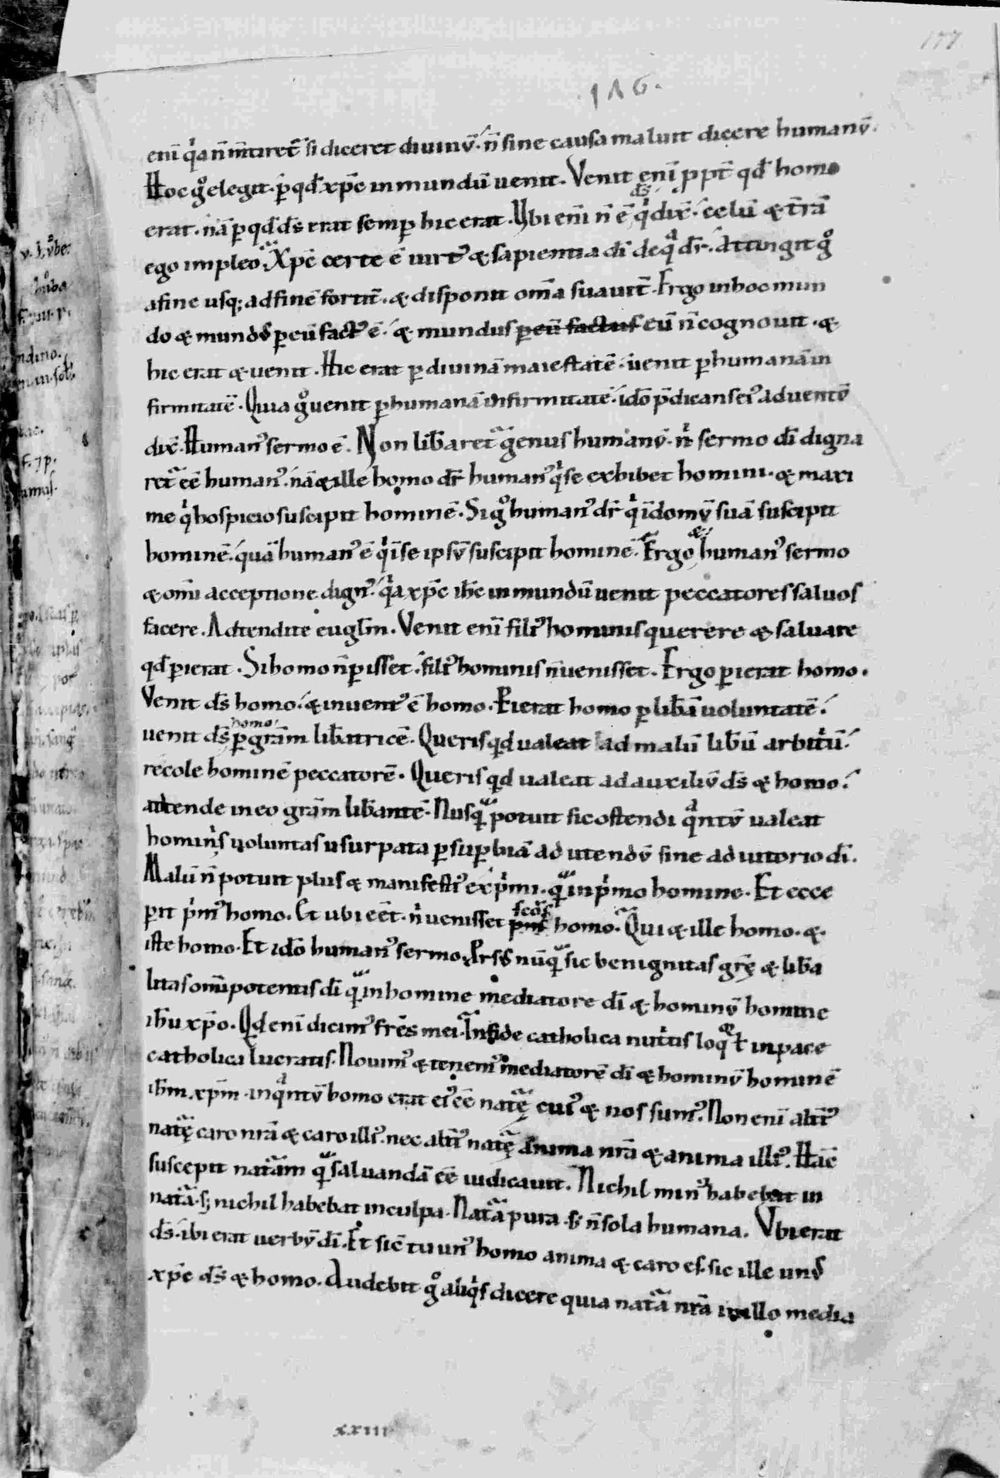 177
176.
eni̅ qͥa n̅ m̅tiret᷑ si diceret diuinu̅. n̅ sine causa maluit dicere humanu̅.
Hoc gͦ elegit. p̱ qd̅ xp̅c in mundu̅ uenit. Venit eni̅ ppt̅ qd̅ homo
erat. na̅ p̱ qd̅ d̅s erat semp̱ hic erat. Vbi eni̅ n̅ e̅ d̅s qͥ dix̅. celu̅ & t̅ra̅
ego impleo. Xp̅c certe e̅ uirtꝰ & sapientia di̅ de qͣ dr̅. Attingit gͦ
a fine usq; ad fine̅ fortit̅. & disponit om̅a suauit̅. Ergo in hoc mun
do & mundꝰ p̱ eu̅ factꝰ e̅. & mundus p̱ eu̅ factus eu̅ n̅ cognouit. &
hic erat & uenit. Hic erat p̱ diuina̅ maiestate̅. uenit p̱ humana̅ in
firmitate̅. Quia gͦ uenit p̱ humana̅ infirmitate̅. ido̅ p̅dicans eiꝰ aduentu̅
dix̅. Humanꝰ sermo e̅. Non lib̅aret᷑ genus humanu̅. nͥ sermo di̅ digna
ret᷑ e̅e humanꝰ. na̅ & ille homo dr̅ humanꝰ qͥ se exhibet homini. & maxi
me qͥ hospicio suscipit homine̅. Si gͦ humanꝰ dr̅ qͥ i̅ domu̅ sua̅ suscipit
homine̅. qua̅ humanꝰ e̅ qͥ i̅ se ipsu̅ suscipit homine̅. Ergo & humanꝰ sermo
& om̅i acceptione dignꝰ. qͥa xp̅c ih̅c in mundu̅ uenit peccatores saluos
facere. Adtendite eugl̅m. Venit eni̅ filiꝰ hominis querere & saluare
qd̅ p̱ierat. Si homo n̅ p̱isset. filiꝰ hominis n̅ uenisset. Ergo p̱ierat homo.
Venit d̅s homo. & inuentꝰ e̅ homo. P̱ierat homo p̱ lib̅a̅ uoluntate̅.
uenit d̅s homo p̱ gra̅m lib̅atrice̅. Queris qd̅ ualeat ad malu̅ lib̅u̅ arbitͥu̅.
recole homine̅ peccatore̅. Queris qd̅ ualeat ad auxiliu̅ d̅s & homo.
attende in eo gra̅m lib̅ante̅. Nusqͣ potuit sic ostendi qͣntu̅ ualeat
hominis uoluntas usurpata p̱ sup̱bia̅ ad utendu̅ sine adiutorio di̅.
Malu̅ n̅ potuit plus & manifestiꝰ exp̍mi. qͣ in pͥmo homine. Et ecce
p̱iit pͥmꝰ homo. Et ubi e̅et. nͥ uenisset scd̅s homo. Quia & ille homo. &
iste homo. Et ido̅ humanꝰ sermo. Prsꝰ nu̅qͣ sic benignitas gr̅e & lib̅a
litas om̅ipotentis di̅ qͣ in homine mediatore di̅ & hominu̅ homine
ih̅u xp̅o. Qd̅ eni̅ dicimꝰ fr̅es mei. In fide catholica nutͥtis loqͦr uel in pace
catholica lucratis. Nouimꝰ & tenemꝰ mediatore̅ di̅ & hominu̅ homine̅
ih̅m xp̅m. in qͣntu̅ homo erat eiꝰ e̅e natͣe cuiꝰ & nos sumꝰ. Non eni̅ altiꝰ
natͣe caro nr̅a & caro illiꝰ. nec altiꝰ natͣe anima nr̅a & anima illiꝰ. Hac̅
suscepit natͣam qͣ saluanda̅ e̅e iudicauit. Nichil minꝰ habebat in
natͣa. s; nichil habebat in culpa. Natͣa pura. s; n̅ sola humana. Vbi erat
d̅s. ibi erat uerbu̅ di̅. Et sic̅ tu unꝰ homo anima & caro es. sic ille unꝰ
xp̅c d̅s & homo. Audebit gͦ aliqͥs dicere quia natͣa nr̅a in illo media
xxiii